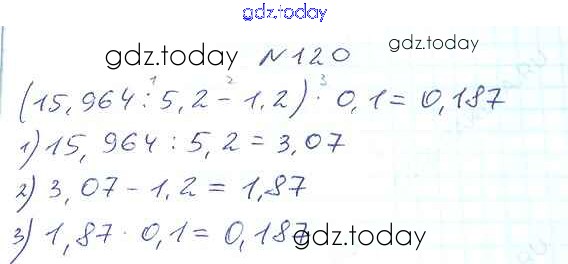 gdz.today
gdz.today №120 gdz.today
(15,964 : 5,2 - 1,2) · 0,1 = 0,187
1) 15,964 : 5,2 = 3,07
2) 3,07 - 1,2 = 1,87
3) 1,87 · 0,1 = 0,187 gdz.today